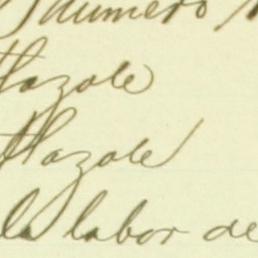 numero
tlazole
tlazole
la labor de